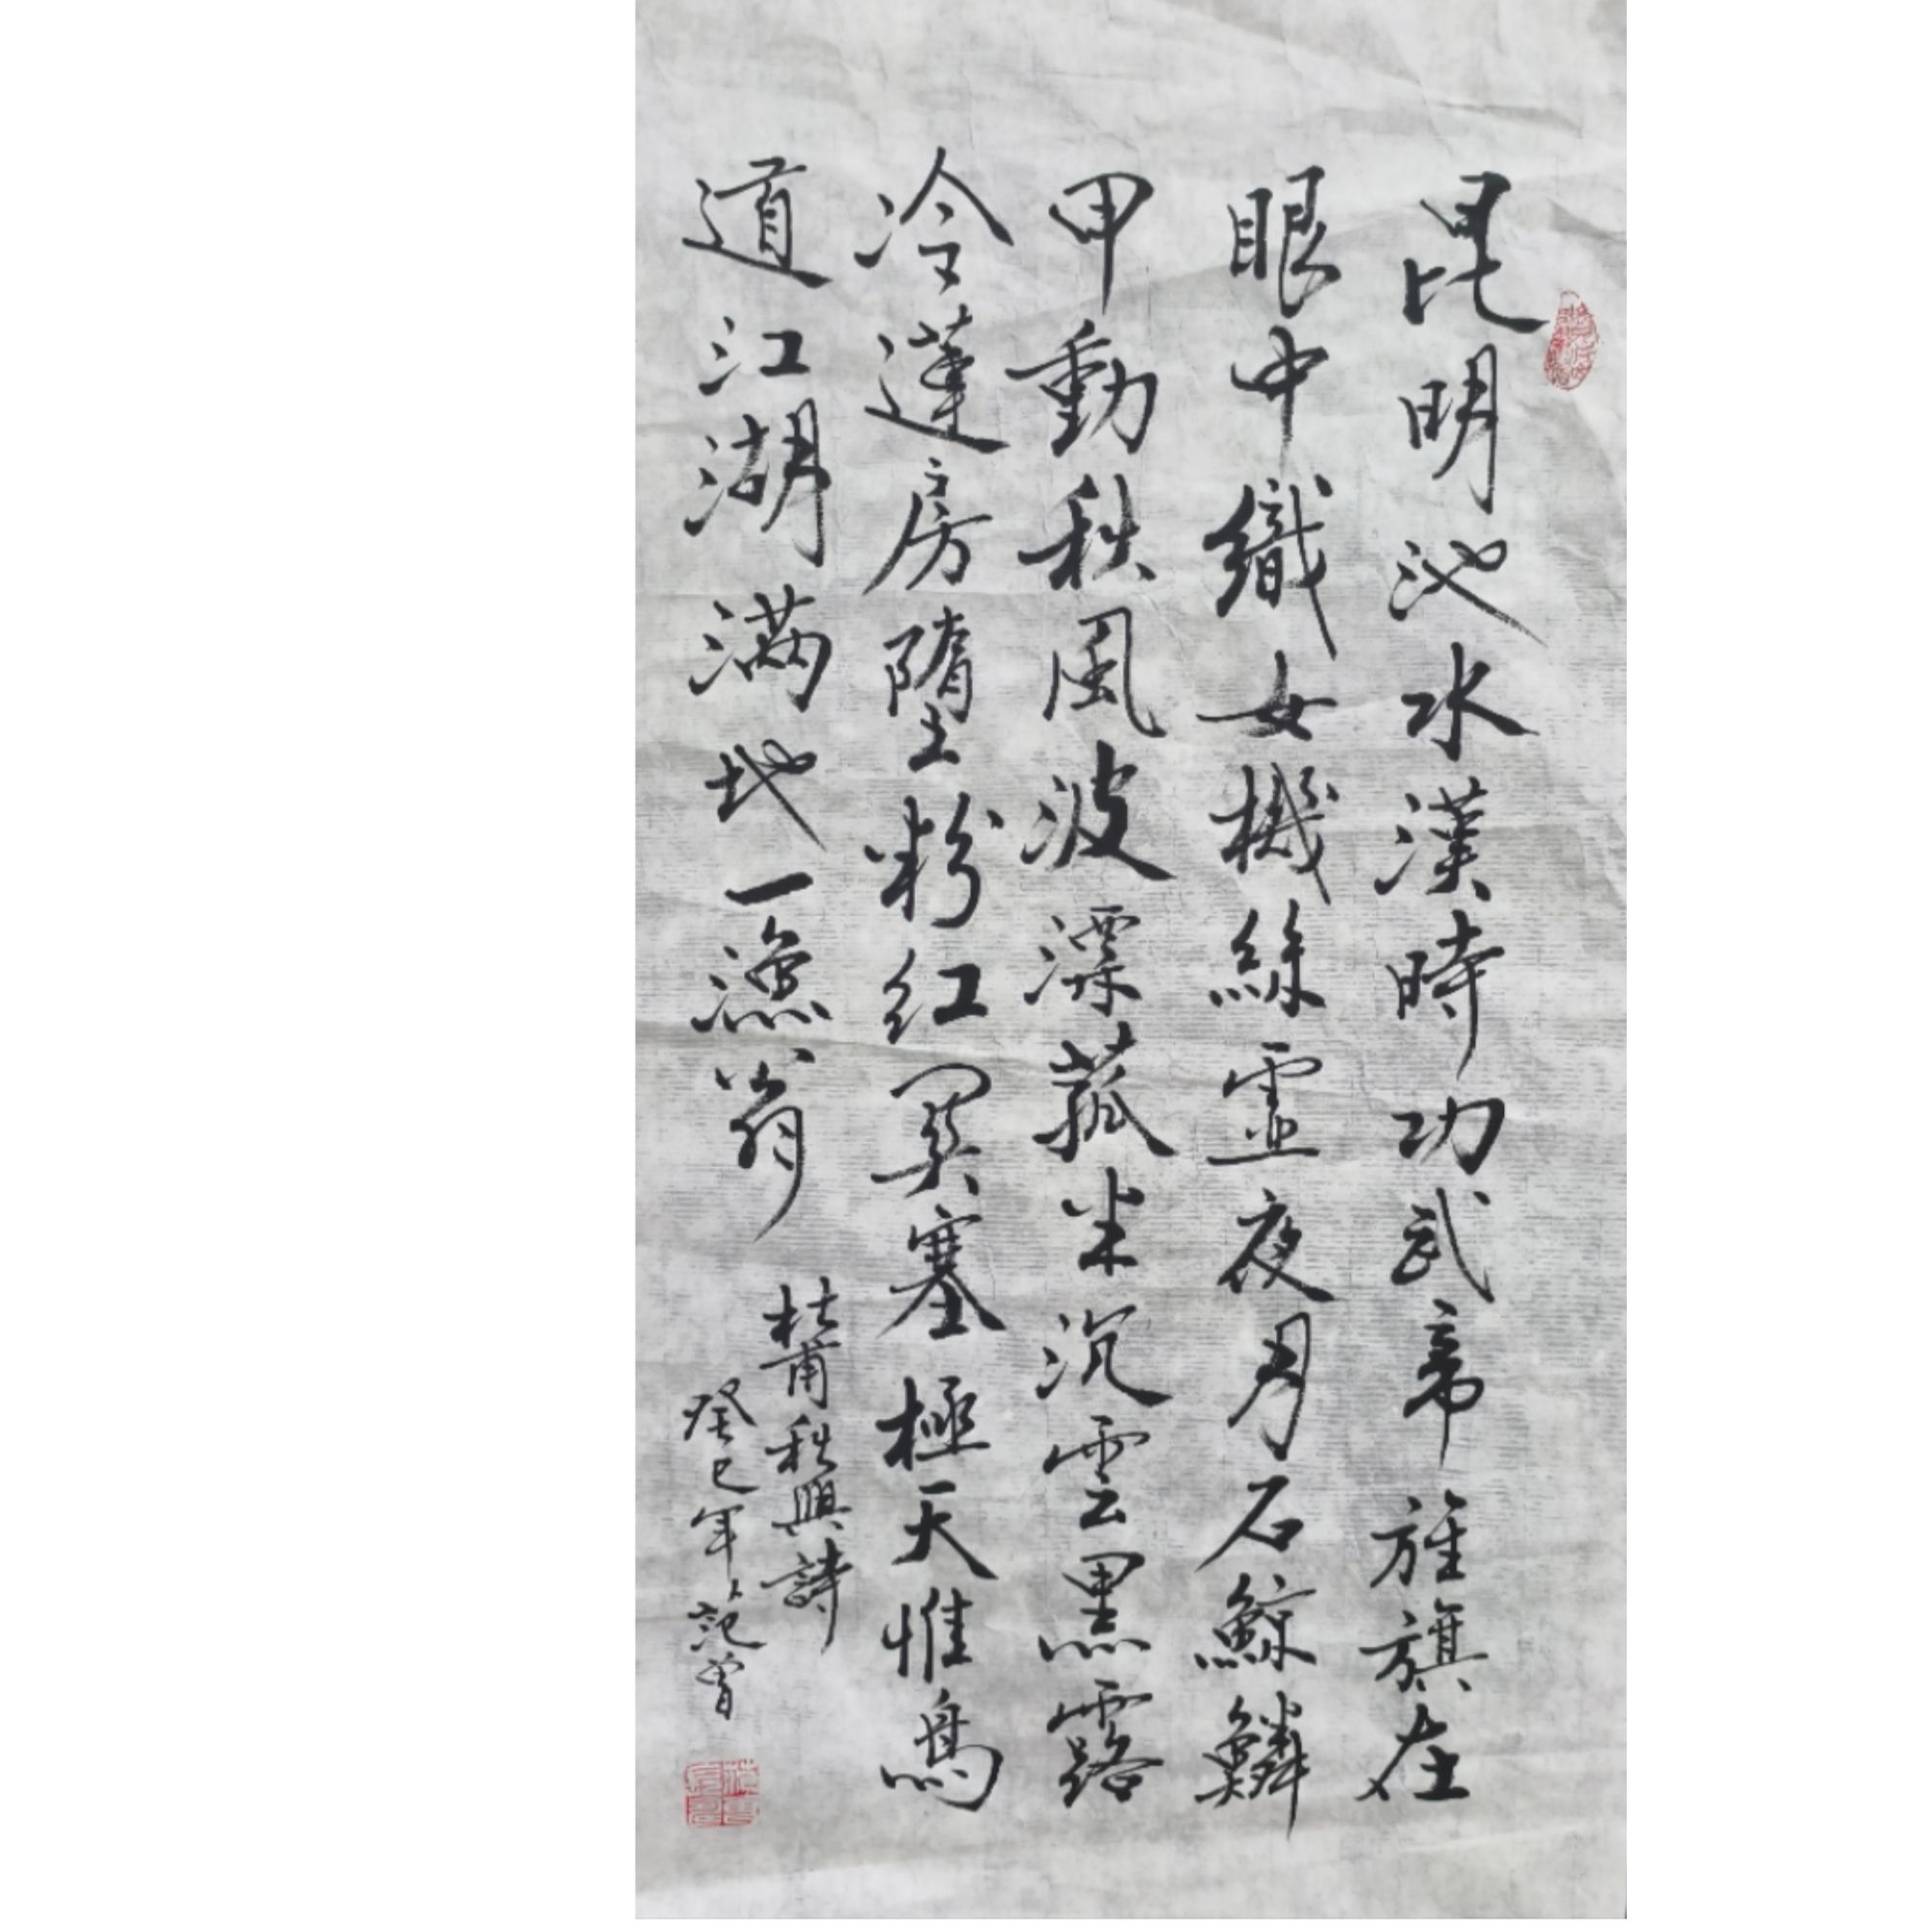 昆明池水漢時功武帝旌旗在
眼中織女機絲虛夜月石鯨鱗
甲動秋風波漂菰米沉雲黑露
冷蓮房墜粉紅關塞極天惟鳥
道江湖滿地一漁翁
杜甫秋興詩
癸巳年